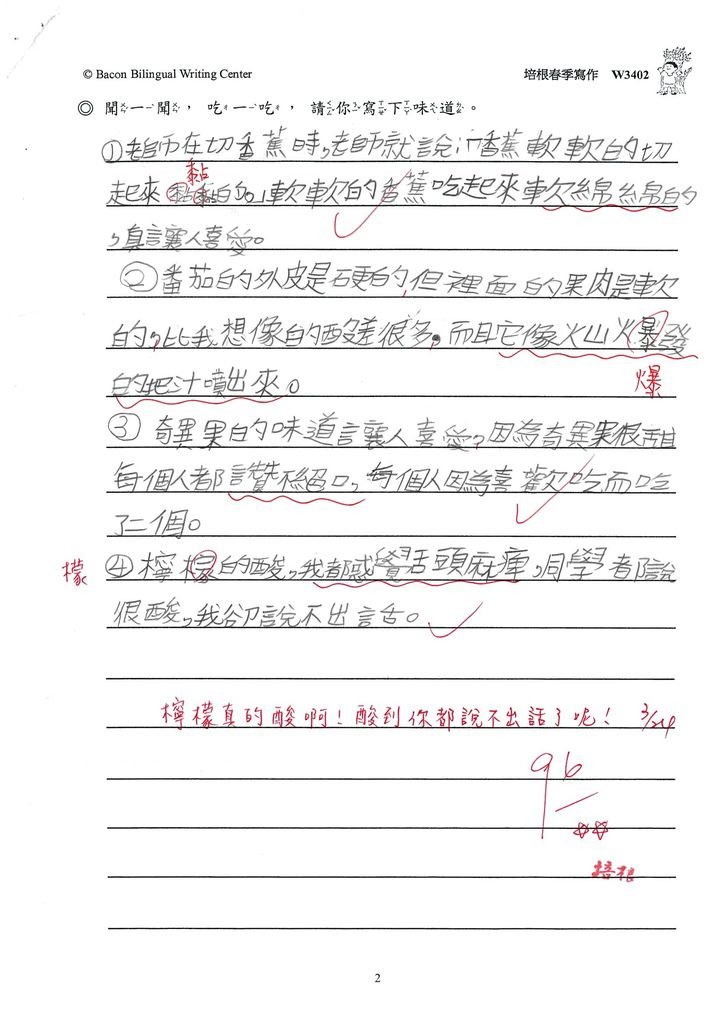 © Bacon Bilingual Writing Center
培根春季寫作 W3402
◎ 聞一聞，吃一吃，請你寫下味道。
①老師在切香蕉時,老師就說:「香蕉軟軟的切
黏
起來黏黏的。」軟軟的香蕉吃起來軟綿綿的
,真讓人喜愛。
②番茄的外皮是硬的,但裡面的果肉是軟
的,比我想像的酸差很多。而且它像火山火暴發
的把汁噴出來。
爆
③奇異果的味道讓人喜愛,因為奇異果很甜
每個人都讚不絕口,每個人因為喜歡吃而吃
了二個。
檬
④檸檬的酸,我都感覺舌頭麻痺,同學都說
很酸,我卻說不出話。
檸檬真的酸啊！酸到你都說不出話了呢！ 3/24
96
培根
2